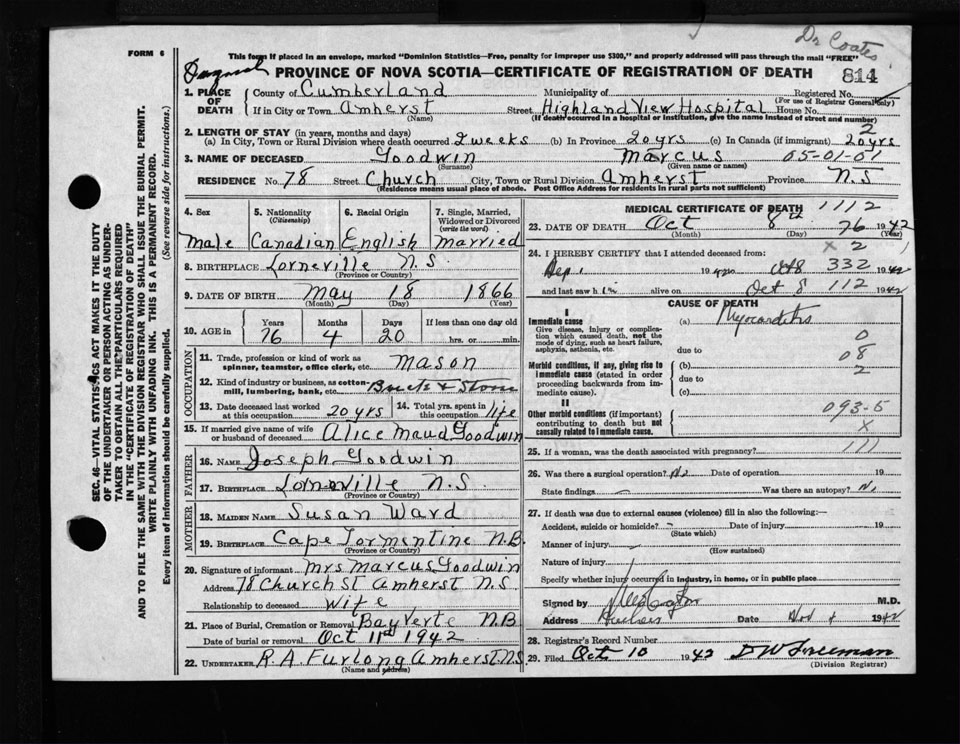 Dr Coates
FORM 6
This form if placed in an envelope, marked "Dominion Statistics—Free, penalty for improper use $300," and properly addressed will pass through the mail "FREE"
PROVINCE OF NOVA SCOTIA—CERTIFICATE OF REGISTRATION OF DEATH
814
1. PLACE OF DEATH
County of Cumberland Municipality of Registered No.
(For use of Registrar General only)
If in City or Town Amherst Street Highland View Hospital House No.
(Name) (If death occurred in a hospital or institution, give the name instead of street and number)
2. LENGTH OF STAY (in years, months and days)
(a) In City, Town or Rural Division where death occurred 2 weeks (b) In Province 20 yrs (c) In Canada (if immigrant) 20 yrs
2
3. NAME OF DECEASED Goodwin Marcus 05-01-01
(Surname) (Given name or names)
RESIDENCE No. 78 Street Church City, Town or Rural Division Amherst Province N.S
(Residence means usual place of abode. Post Office Address for residents in rural parts not sufficient)
4. Sex
Male
5. Nationality
(Citizenship)
Canadian
6. Racial Origin
English
7. Single, Married, Widowed or Divorced
(write the word)
married
8. BIRTHPLACE Lorneville N.S.
(Province or Country)
9. DATE OF BIRTH May 18 1866
(Month) (Day) (Year)
10. AGE in
Years Months Days If less than one day
76 4 20 hrs. or min.
OCCUPATION
11. Trade, profession or kind of work as spinner, teamster, office clerk, etc. Mason
12. Kind of industry or business, as cotton-mill, lumbering, bank, etc. Brick & Stone
13. Date deceased last worked at this occupation 20 yrs
14. Total yrs. spent in this occupation life
15. If married give name of wife or husband of deceased Alice Maud Goodwin
FATHER
16. NAME Joseph Goodwin
17. BIRTHPLACE Lorneville N.S.
(Province or Country)
MOTHER
18. MAIDEN NAME Susan Ward
19. BIRTHPLACE Cape Tormentine N.B.
(Province or Country)
20. Signature of informant Mrs Marcus Goodwin
Address 78 Church St Amherst N.S
Relationship to deceased Wife
21. Place of Burial, Cremation or Removal Bay Verte N.B.
Date of burial or removal Oct 11th 1942
22. UNDERTAKER R.A. Furlong Amherst N.S.
(Name and address)
MEDICAL CERTIFICATE OF DEATH 1112
23. DATE OF DEATH Oct 8th 76 1942
(Month) (Day) (Year)
24. I HEREBY CERTIFY that I attended deceased from: x 2
1942 to Oct 8 332 1942
and last saw him alive on Oct 8 112 1942
CAUSE OF DEATH
I
Immediate cause
Give disease, injury or complication which caused death, not the mode of dying, such as heart failure, asphyxia, asthenia, etc.
(a) Myocarditis
due to
0
08
2
Morbid conditions, if any, giving rise to immediate cause (stated in order proceeding backwards from immediate cause).
(b)
due to
(c)
II
Other morbid conditions (if important) contributing to death but not causally related to immediate cause.
093-5
x
25. If a woman, was the death associated with pregnancy? 111
26. Was there a surgical operation? No Date of operation 19
State findings Was there an autopsy? No
27. If death was due to external causes (violence) fill in also the following:—
Accident, suicide or homicide? Date of injury 19
(State which)
Manner of injury
(How sustained)
Nature of injury
Specify whether injury occurred in industry, in home, or in public place
Signed by M.D.
Address Date 1942
28. Registrar's Record Number
29. Filed Oct 10 1942 D W Freeman
(Division Registrar)
SEC. 46—VITAL STATISTICS ACT MAKES IT THE DUTY
OF THE UNDERTAKER OR PERSON ACTING AS UNDER-
TAKER TO OBTAIN ALL THE PARTICULARS REQUIRED
IN THE "CERTIFICATE OF REGISTRATION OF DEATH"
AND TO FILE THE SAME WITH THE DIVISION REGISTRAR WHO SHALL ISSUE THE BURIAL PERMIT.
WRITE PLAINLY WITH UNFADING INK. THIS IS A PERMANENT RECORD.
Every item of information should be carefully supplied. (See reverse side for instructions.)